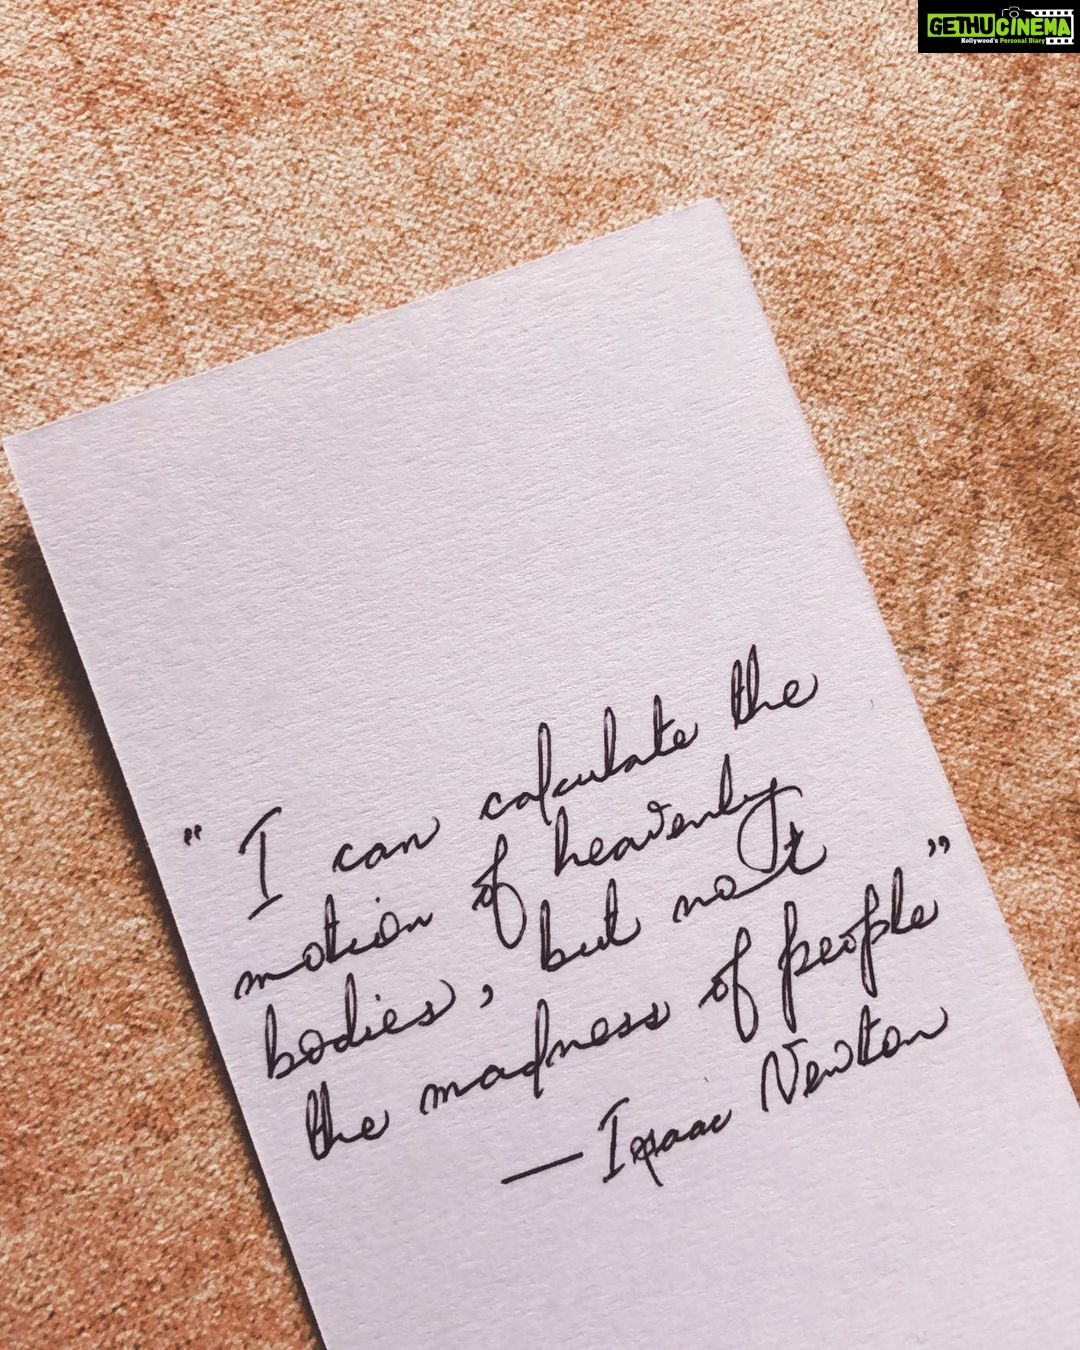 GETHUCINEMA
Kollywood's Personal Diary
" I can calculate the
motion of heavenly
bodies, but not
the madness of people"
— Isaac Newton